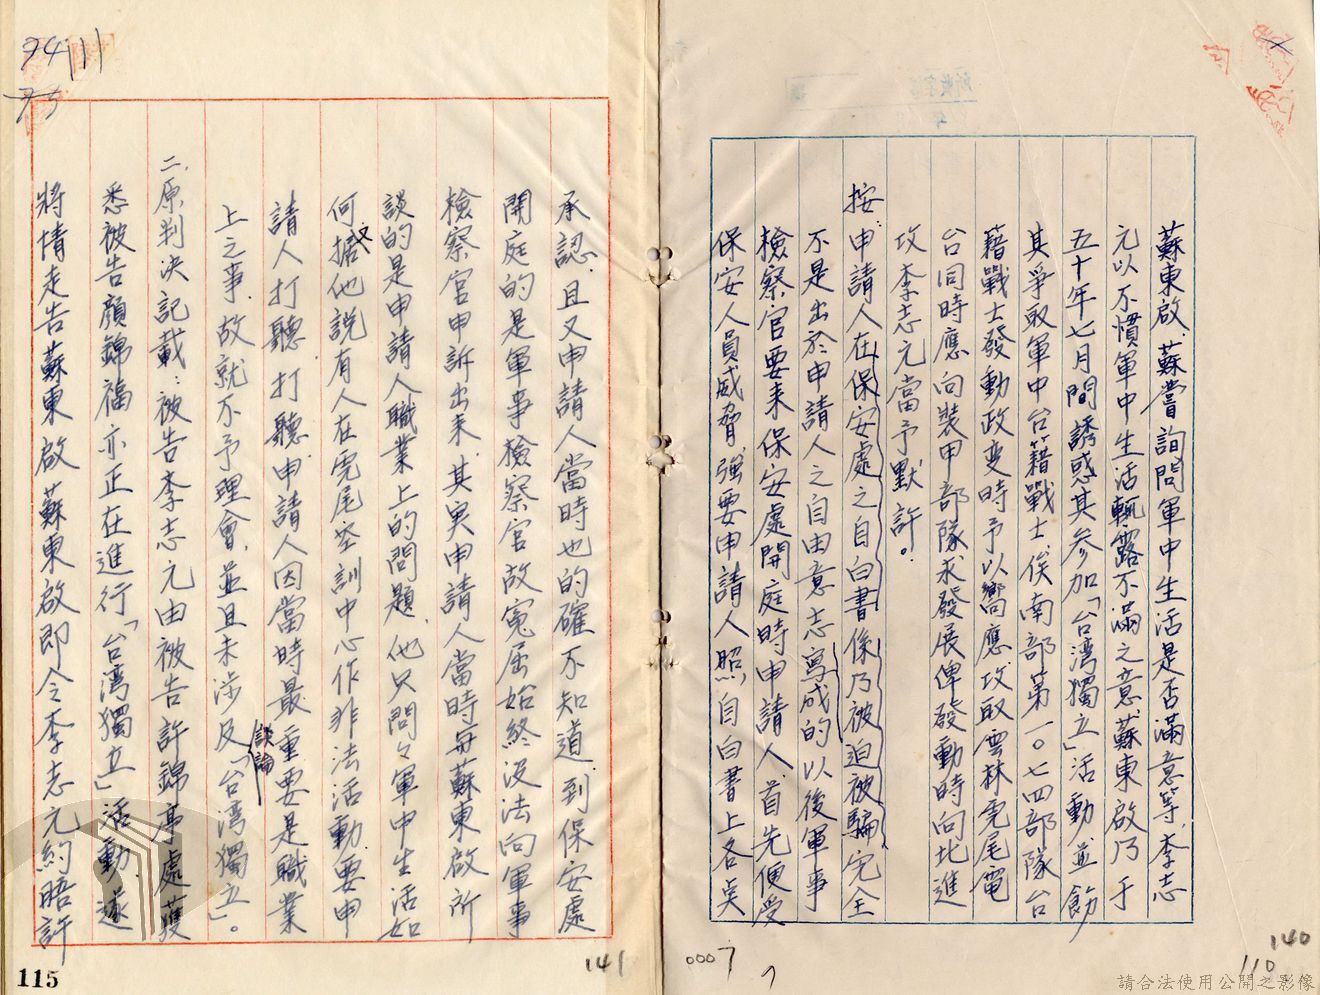 蘇東啟、蘇嘗詢問軍中生活是否滿意等、李志
元以不慣軍中生活輒露不滿之意、蘇東啟乃于
五十年七月間誘惑其參加「台湾獨立」活動、並飭
其爭取軍中台籍戰士、俟南部第一〇七四部隊台
籍戰士發動政变時予以嚮應、攻取雲林虎尾電
台同時應向裝甲部隊求發展俾發動時向北進
攻李志元當予默許。
按:申請人在保安處之自白書係乃被迫被騙完全
不是出於申請人之自由意志寫成的、以後軍事
檢察官要来保安處開庭時申請人、首先便受
保安人員威脅、強要申請人照自白書上各矣
承認、且又申請人當時也的確不知道、到保安處
開庭的是軍事檢察官故冤屈始終没法向軍事
檢察官申訴出来、其实申請人當時與蘇東啟所
談的是申請人職業上的問題、他只問々軍中生活如
何、又据他説有人在虎尾空訓中心作非法活動、要申
請人打聽打聽、申請人因當時最重要是職業
上之事、故就不予理會、並且未涉及談論「台湾獨立」。
二、原判決記載:被告李志元由被告許錦亭處獲
悉被告顏錦福亦正在進行「台湾獨立」活動、遂
將情走告蘇東啟蘇東啟即令李志元約晤許
94 111
75
115
141
0007
7
140
110
請合法使用公開之影像